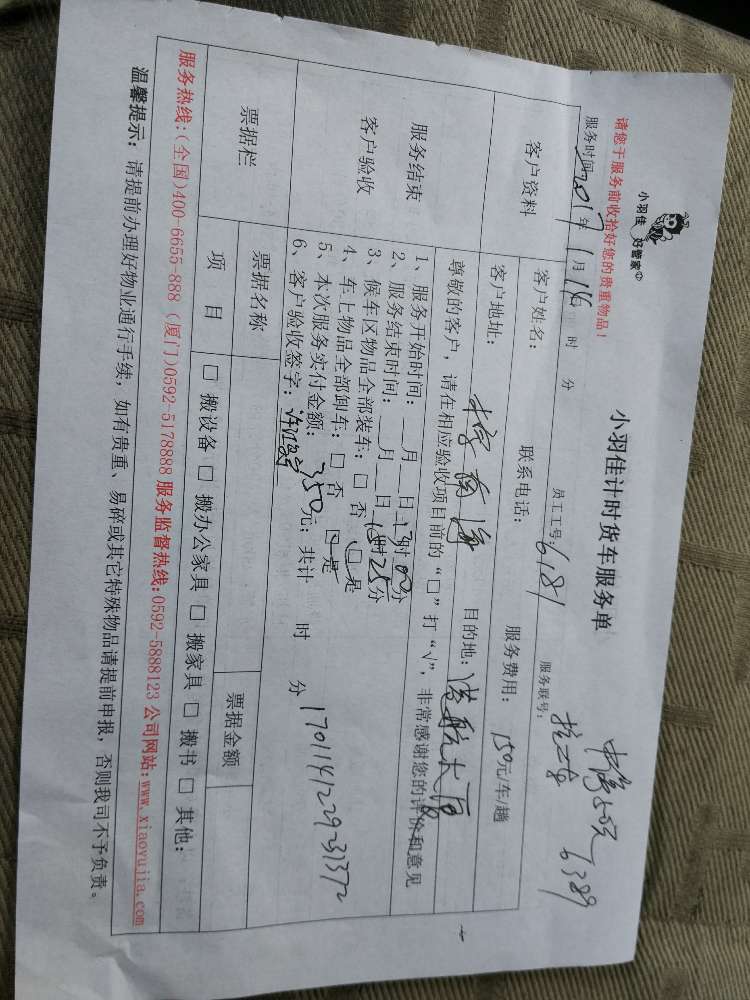 小羽佳 好管家
小羽佳计时货车服务单
请您于服务前收拾好您的贵重物品！
服务时间: 2017年 1月 16 时 分 员工工号: 6181 服务联号:
6389
客户资料 客户姓名: 联系电话: 服务费用: 150元/车/趟
客户地址: 目的地:
服务结束客户验收
尊敬的客户，请在相应验收项目前的“□”打“√”，非常感谢您的评价和意见
1、服务开始时间: 月 日 时00分
2、服务结束时间: 月 日 时25分
3、候车区物品全部装车: □ 否 □ 是
4、车上物品全部卸车: □ 否 □ 是
5、本次服务实付金额: 350元; 共计 时 分
6、客户验收签字:
1701141229231372
票据栏 票据名称 票据金额
项 目 □ 搬设备 □ 搬办公家具 □ 搬家具 □ 搬书 □ 其他:
服务热线: (全国)400-6655-888 (厦门)0592-5178888 服务监督热线:0592-5888123 公司网站:www.xiaoyujia.com
温馨提示: 请提前办理好物业通行手续，如有贵重、易碎或其它特殊物品请提前申报，否则我司不予负责。